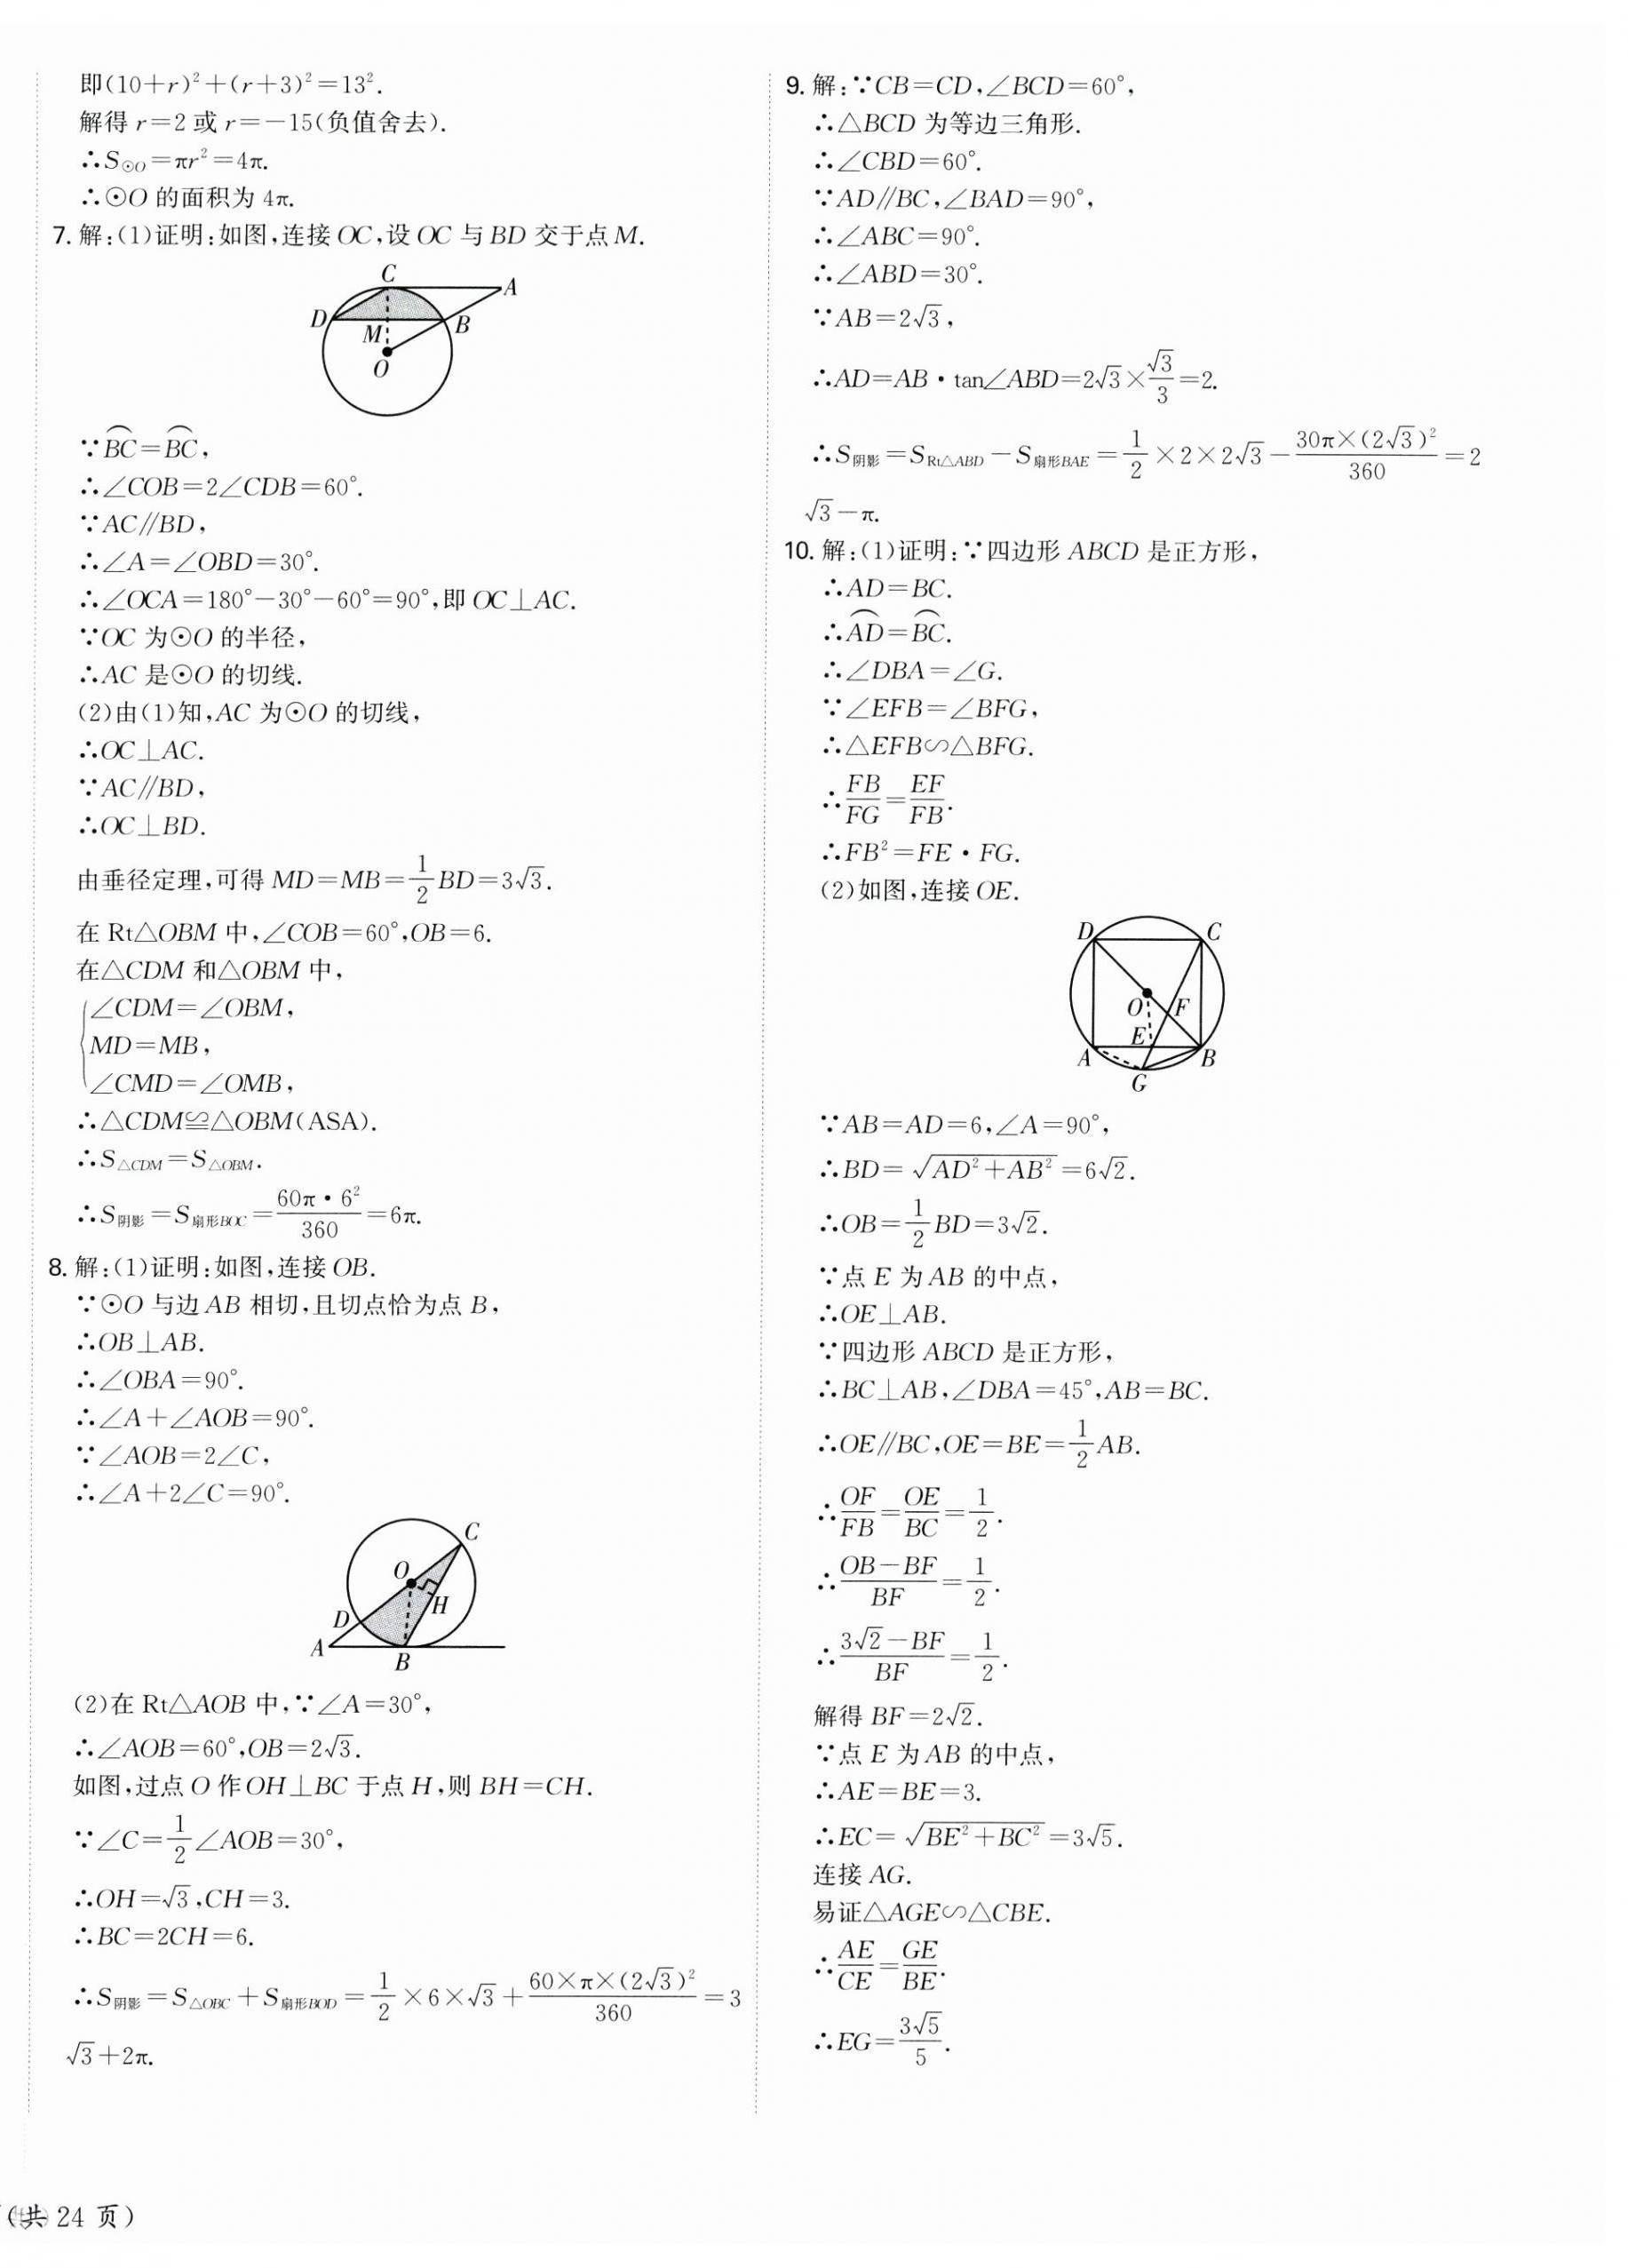 即(10+r)²+(r+3)²=13².
解得 r=2 或 r=-15(负值舍去).
∴S⊙O=πr²=4π.
∴⊙O 的面积为 4π.
7. 解:(1)证明:如图,连接 OC,设 OC 与 BD 交于点 M.
C
A
D
M
B
O
∵⌒BC=⌒BC,
∴∠COB=2∠CDB=60°.
∵AC∥BD,
∴∠A=∠OBD=30°.
∴∠OCA=180°-30°-60°=90°,即 OC⊥AC.
∵OC 为⊙O 的半径,
∴AC 是⊙O 的切线.
(2)由(1)知,AC 为⊙O 的切线,
∴OC⊥AC.
∵AC∥BD,
∴OC⊥BD.
由垂径定理,可得 MD=MB=1/2 BD=3√3.
在 Rt△OBM 中,∠COB=60°,OB=6.
在△CDM 和△OBM 中,
∠CDM=∠OBM,
MD=MB,
∠CMD=∠OMB,
∴△CDM≌△OBM(ASA).
∴S△CDM=S△OBM.
∴S阴影=S扇形BOC=60π·6²/360=6π.
8. 解:(1)证明:如图,连接 OB.
∵⊙O 与边 AB 相切,且切点恰为点 B,
∴OB⊥AB.
∴∠OBA=90°.
∴∠A+∠AOB=90°.
∵∠AOB=2∠C,
∴∠A+2∠C=90°.
C
O
H
D
A
B
(2)在 Rt△AOB 中,∵∠A=30°,
∴∠AOB=60°,OB=2√3.
如图,过点 O 作 OH⊥BC 于点 H,则 BH=CH.
∵∠C=1/2∠AOB=30°,
∴OH=√3,CH=3.
∴BC=2CH=6.
∴S阴影=S△OBC+S扇形BOD=1/2×6×√3+60×π×(2√3)²/360=3
√3+2π.
(共 24 页)
9. 解:∵CB=CD,∠BCD=60°,
∴△BCD 为等边三角形.
∴∠CBD=60°.
∵AD∥BC,∠BAD=90°,
∴∠ABC=90°.
∴∠ABD=30°.
∵AB=2√3,
∴AD=AB·tan∠ABD=2√3×√3/3=2.
∴S阴影=SRt△ABD-S扇形BAE=1/2×2×2√3-30π×(2√3)²/360=2
√3-π.
10. 解:(1)证明:∵四边形 ABCD 是正方形,
∴AD=BC.
∴⌒AD=⌒BC.
∴∠DBA=∠G.
∵∠EFB=∠BFG,
∴△EFB∽△BFG.
∴FB/FG=EF/FB.
∴FB²=FE·FG.
(2)如图,连接 OE.
D
C
O
F
E
A
B
G
∵AB=AD=6,∠A=90°,
∴BD=√(AD²+AB²)=6√2.
∴OB=1/2 BD=3√2.
∵点 E 为 AB 的中点,
∴OE⊥AB.
∵四边形 ABCD 是正方形,
∴BC⊥AB,∠DBA=45°,AB=BC.
∴OE∥BC,OE=BE=1/2 AB.
∴OF/FB=OE/BC=1/2.
∴(OB-BF)/BF=1/2.
∴(3√2-BF)/BF=1/2.
解得 BF=2√2.
∵点 E 为 AB 的中点,
∴AE=BE=3.
∴EC=√(BE²+BC²)=3√5.
连接 AG.
易证△AGE∽△CBE.
∴AE/CE=GE/BE.
∴EG=3√5/5.